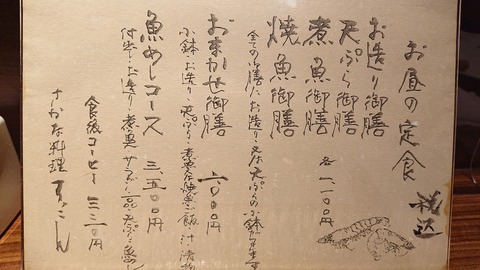 お昼の定食 税込
お造り御膳
天ぷら御膳
煮魚御膳
焼魚御膳
各一、一〇〇円
全ての御膳にお造り又は天ぷらの小鉢が付きます
おまかせ御膳 二、〇〇〇円
小鉢 お造り 天ぷら 煮魚又は焼魚 飯 汁 漬物
魚めしコース 三、五〇〇円
付出し お造り 煮魚 サラダ 一品 天ぷら 魚めし
食後コーヒー 三三〇円
さかな料理